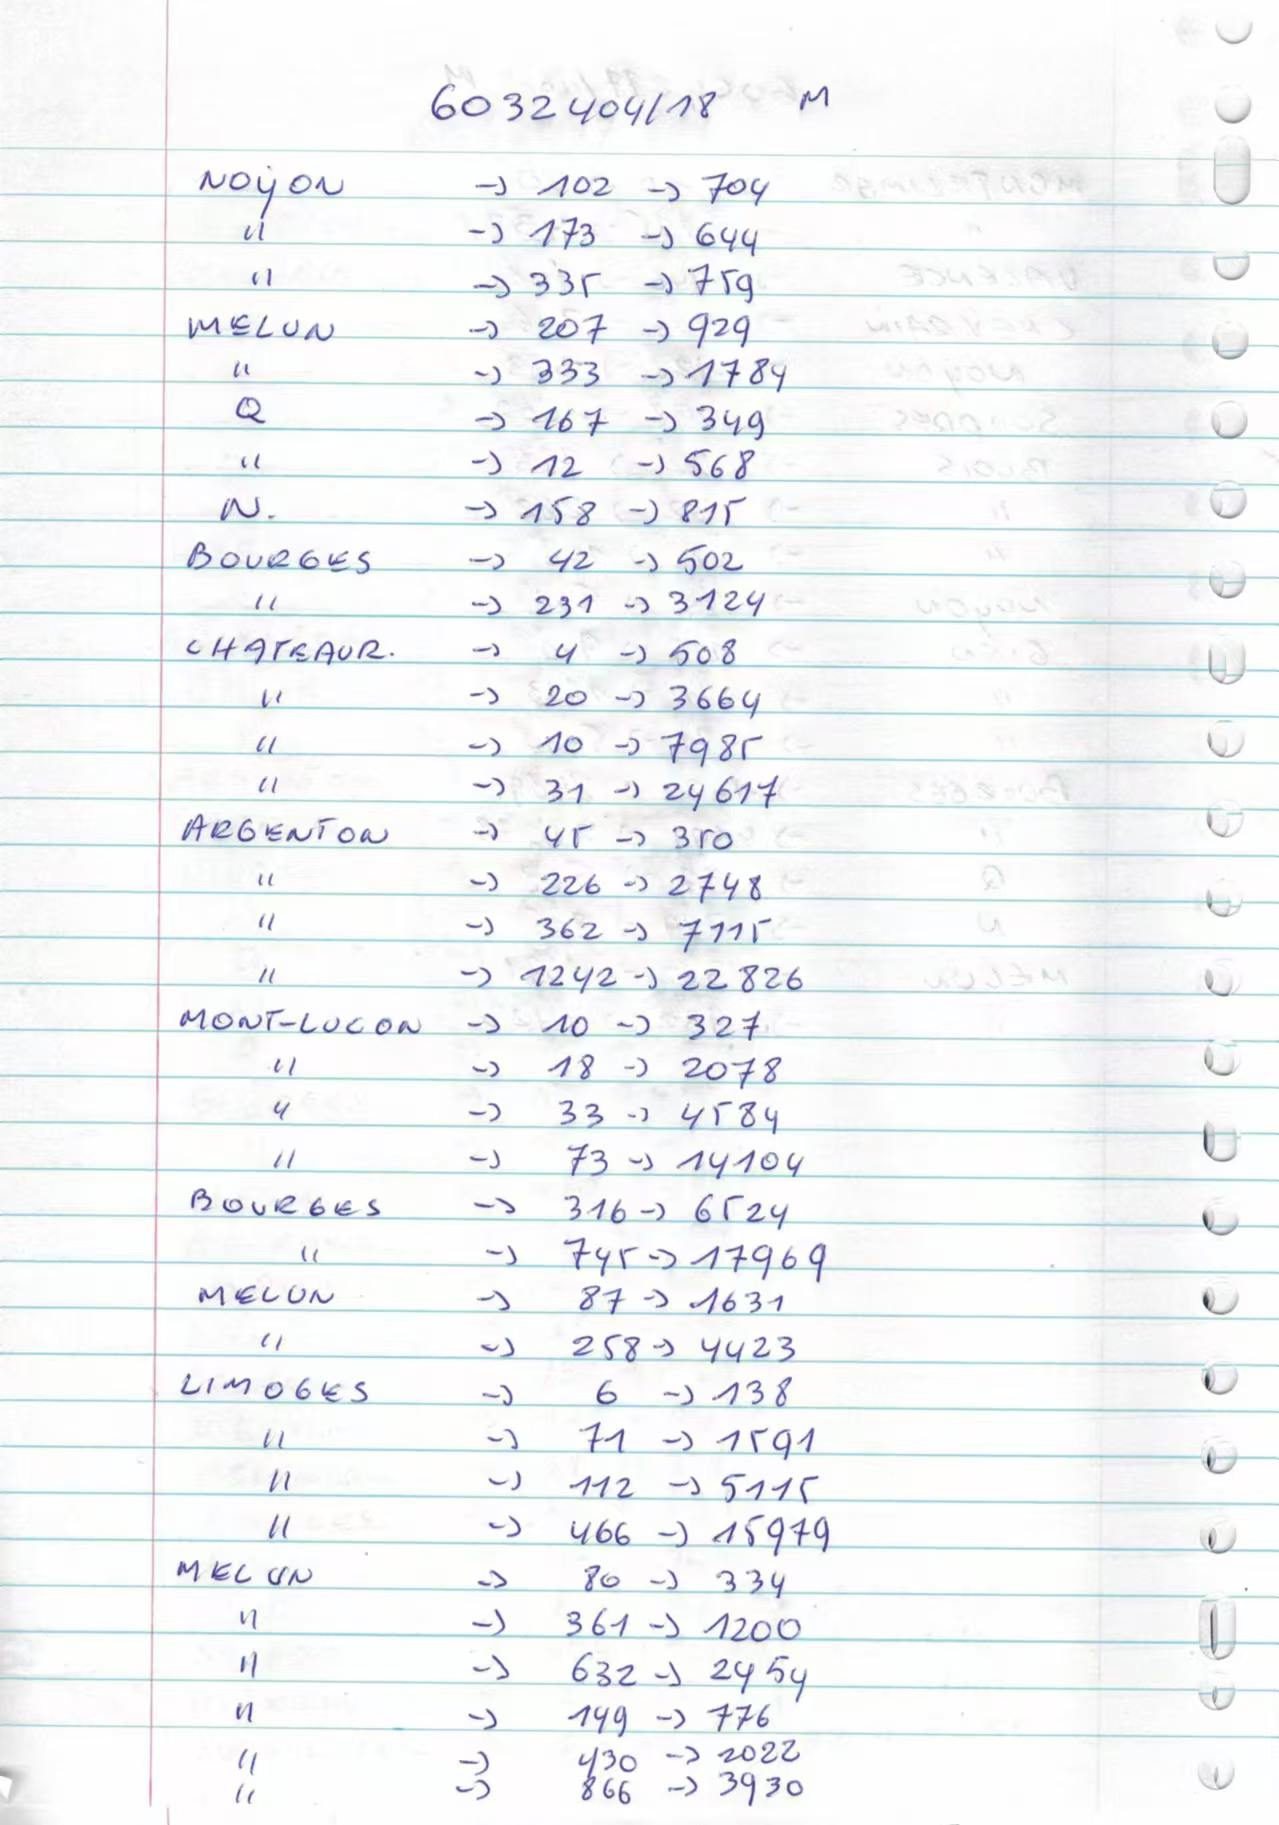 6032404/18 M
NOYON -> 102 -> 704
" -> 173 -> 644
" -> 335 -> 759
MELUN -> 207 -> 929
" -> 333 -> 1784
Q -> 167 -> 349
" -> 12 -> 568
N. -> 158 -> 815
BOURGES -> 42 -> 502
" -> 231 -> 3124
CHATEAUR. -> 4 -> 508
" -> 20 -> 3664
" -> 10 -> 7985
" -> 31 -> 24617
ARGENTON -> 45 -> 350
" -> 226 -> 2748
" -> 362 -> 7115
" -> 1242 -> 22826
MONT-LUCON -> 10 -> 327
" -> 18 -> 2078
" -> 33 -> 4584
" -> 73 -> 14104
BOURGES -> 316 -> 6524
" -> 745 -> 17969
MELUN -> 87 -> 1631
" -> 258 -> 4423
LIMOGES -> 6 -> 138
" -> 71 -> 1591
" -> 112 -> 5115
" -> 466 -> 15979
MELUN -> 80 -> 334
" -> 361 -> 1200
" -> 632 -> 2454
" -> 149 -> 776
" -> 430 -> 2022
" -> 866 -> 3930